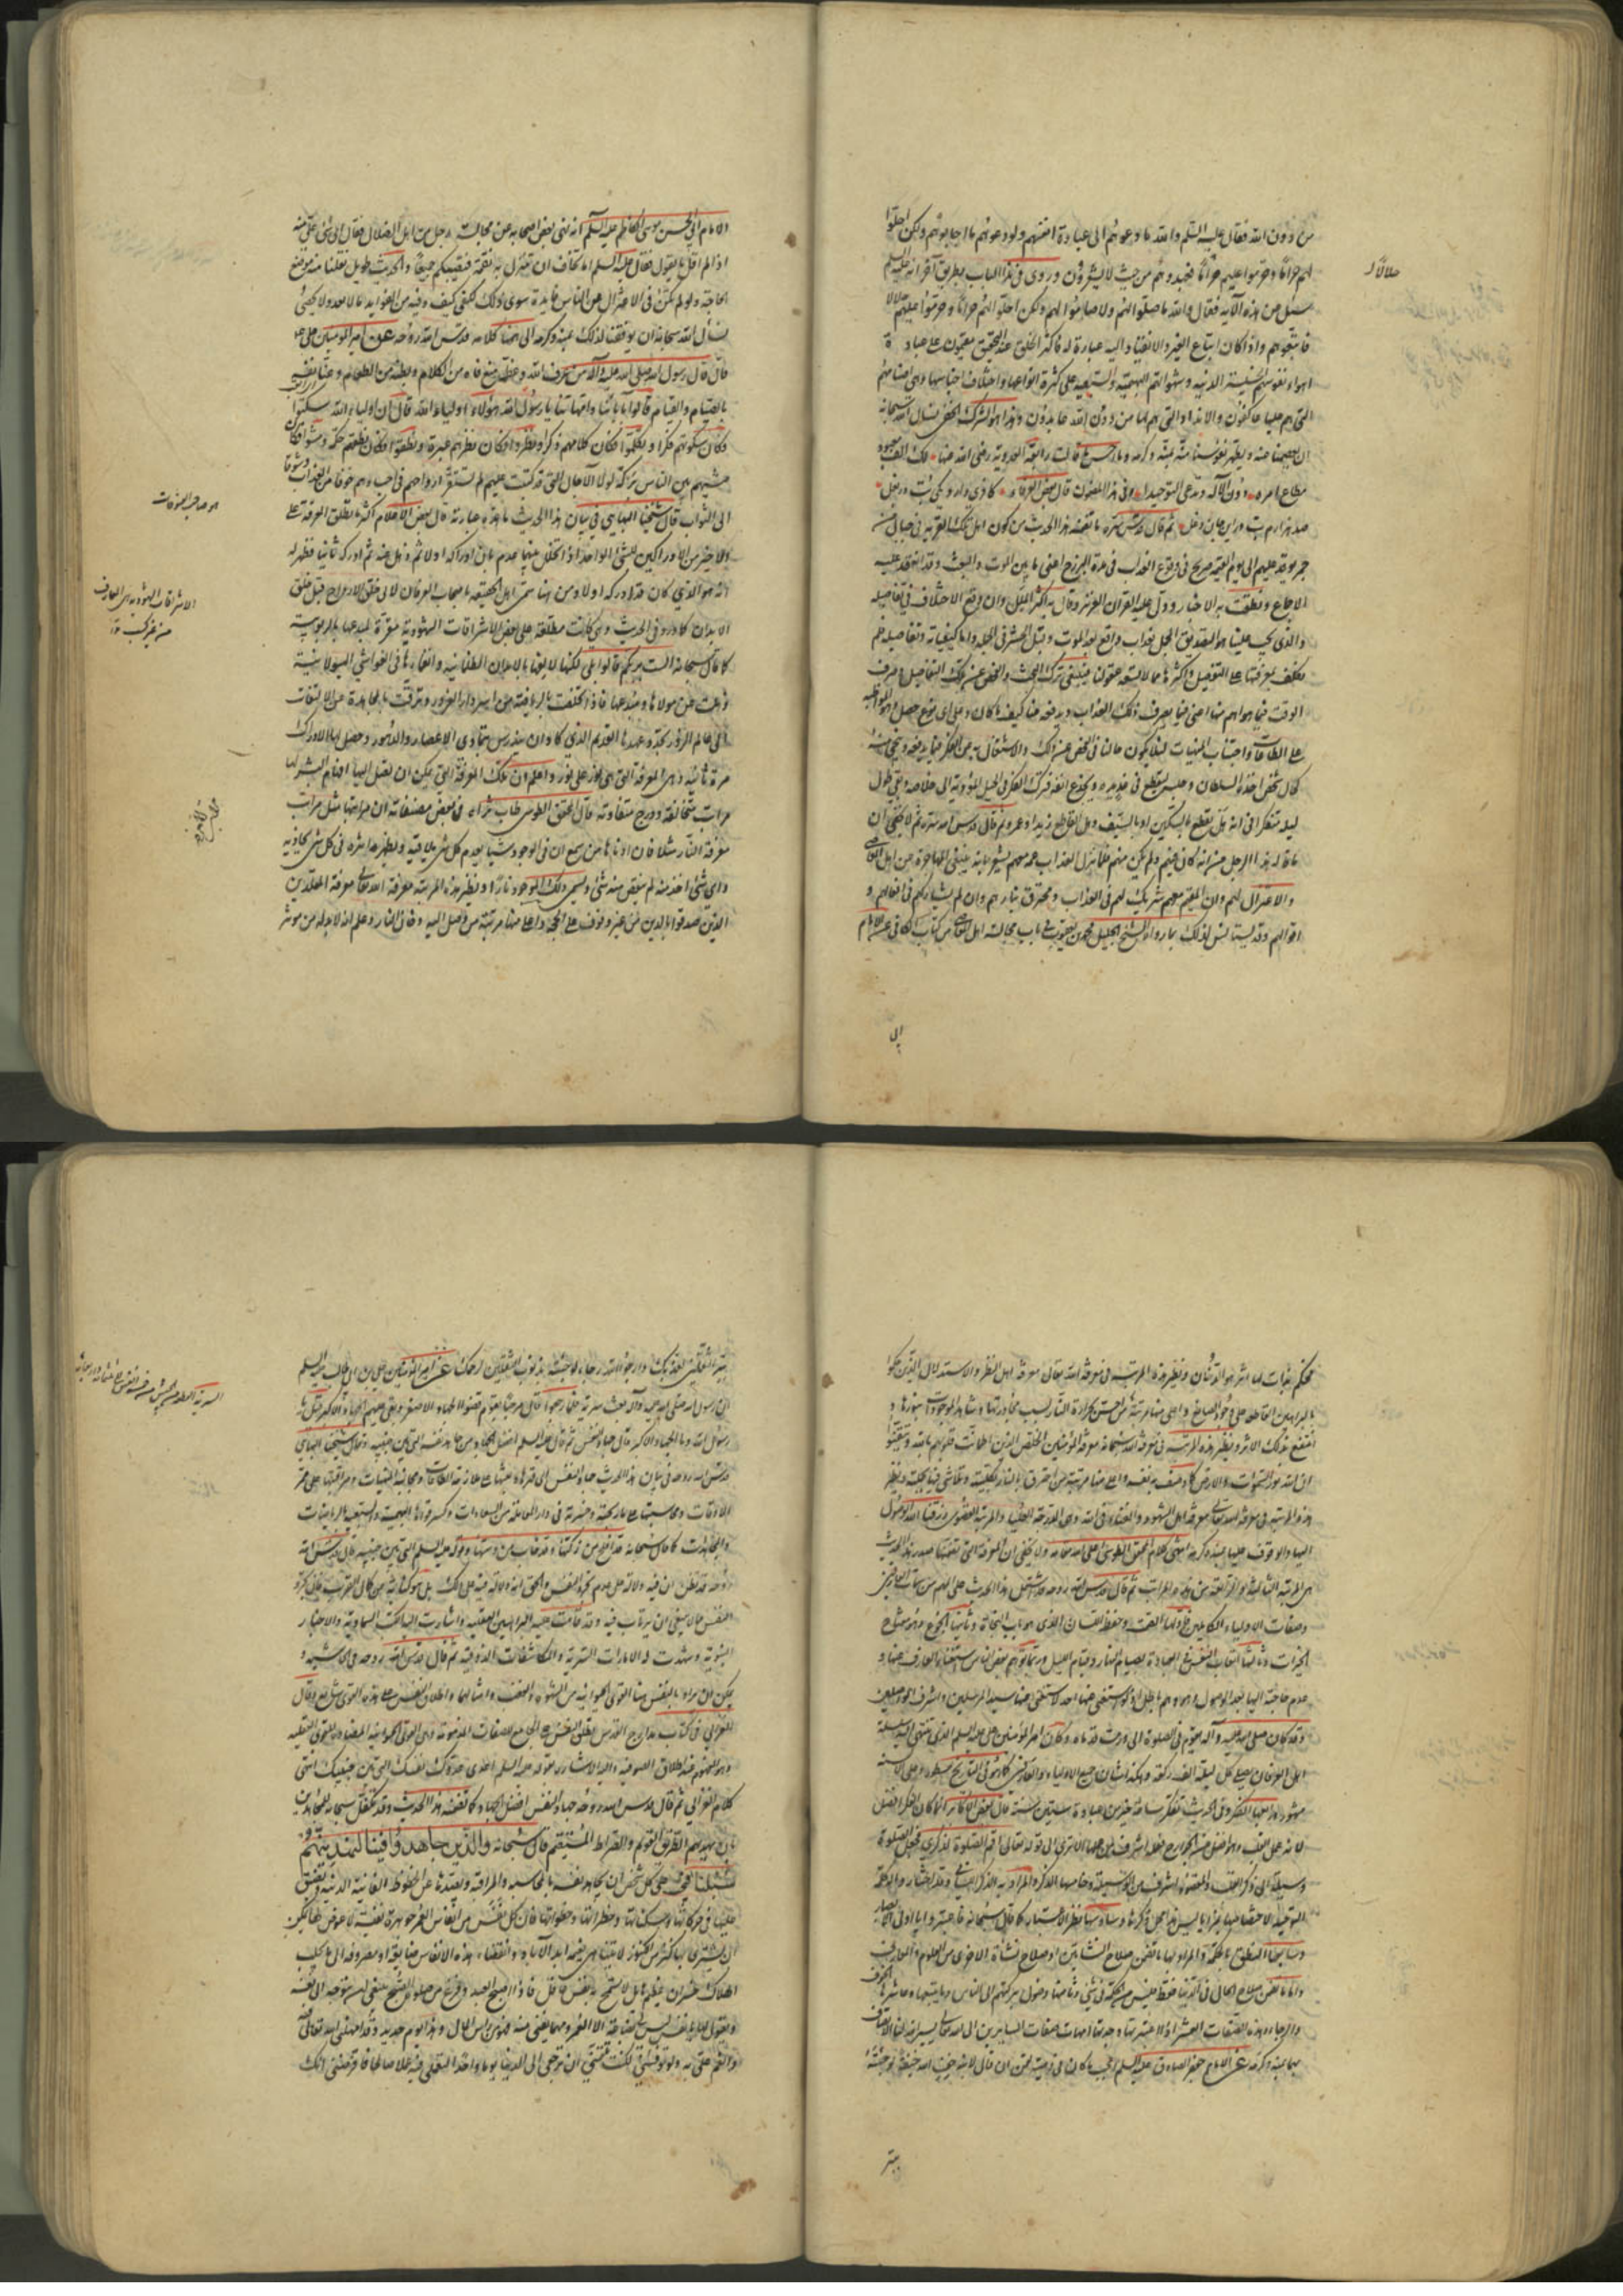 من دون الله فقال عليه السلم والله ما دعوهم الى عبادة انفسهم ولو دعوهم ما اجابوهم ولكن احلوا
لهم حراما وحرموا عليهم حلالا فعبدوهم من حيث لا يشعرون وروى في هذا الباب بطريق آخر انه عليه السلم
سئل عن هذه الآية فقال والله ما صلوا لهم ولا صاموا لهم ولكن احلوا لهم حراما وحرموا عليهم حلالا
فاتبعوهم واذا كان اتباع الغير والانقياد اليه عبادة له فاكثر الخلق عند التحقيق مقيمون على عبادة
اهواء نفوسهم الخسيسة الدنية وشهواتهم البهيمية والسبعية على كثرة انواعها واختلاف اجناسها وهي اصنامهم
التي هم عليها عاكفون والانداد التي هم لها من دون الله عابدون وهذا هو الشرك الخفي نسال الله سبحانه
ان يعصمنا عنه ويطهر نفوسنا منه بمنه وكرمه وما احسن ما قالت رابعة العدوية رضى الله عنها لك الف معبود
مطاع امره دون الاله وتدعي التوحيدا وفي هذا المضمون قال بعض العرفاء
ثم قال قدس سره ما تضمنه هذا الحديث من كون اهل تلك القرية في جبال من
جمر يوقد عليهم الى يوم القيمة صريح في وقوع العذاب في مدة البرزخ اعني ما بين الموت والبعث وقد انعقد عليه
الاجماع ونطقت به الاخبار ودل عليه القران العزيز وقال به اكثر الملل وان وقع الاختلاف في تفاصيله
والذي يجب علينا هو التصديق المجمل بعذاب واقع بعد الموت وقبل الحشر في الجملة واما كيفياته وتفاصيله فلم
نكلف بمعرفتها على التفصيل واكثرها مما لا تسعه عقولنا فينبغي ترك البحث والفحص عن تلك التفاصيل وصرف
الوقت فيما هو اهم منها اعني فيما يصرف ذلك العذاب ويدفعه عنا كيف ما كان وعلى اي نوع حصل وهو المواظبة
على الطاعات واجتناب المنهيات لئلا يكون حالنا في الفحص عن ذلك والاشتغال به عن الفكر فيما يدفعه وينجي منه
كحال شخص اخذه السلطان وحبسه ليقطع في غد يده ويجدع انفه فترك الفكر في الحيل المؤدية الى خلاصه وبقي طول
ليله متفكرا في انه هل يقطع بالسكين او بالسيف وهل القاطع زيد او عمرو ثم قال قدس الله سره ثم لا يخفى ان
ما قاله هذا الرجل من انه كان فيهم ولم يكن منهم فلما نزل العذاب عمه معهم يشعر بانه ينبغي المهاجرة عن اهل المعاصي
والاعتزال لهم وان المقيم معهم شريك لهم في العذاب ومحترق بنارهم وان لم يشاركهم في افعالهم و
اقوالهم وقد يستانس لذلك بما رواه الشيخ الجليل محمد بن يعقوب في باب مجالسة اهل المعاصي من كتاب الكافي عن الامام
الامام ابي الحسن موسى الكاظم عليه السلم انه نهى بعض اصحابه عن مجالسة رجل من اهل الضلال فقال اي شئ علي منه
اذا لم اقل ما يقول فقال عليه السلم اما تخاف ان تنزل به نقمة فتصيبكم جميعا والحديث طويل نقلنا منه موضع
الحاجة ولو لم يكن في الاعتزال عن الناس فايدة سوى ذلك لكفى كيف وفيه من الفوايد ما لا يعد ولا يحصى
نسأل الله سبحانه ان يوفقنا لذلك بمنه وكرمه انتهى كلامه قدس الله روحه عن امير المومنين علي ع
قال قال رسول الله صلى الله عليه وآله من عرف الله وعظمه منع فاه من الكلام وبطنه من الطعام وعنا نفسه
بالصيام والقيام قالوا بآبائنا وامهاتنا يا رسول الله هؤلاء اولياء الله قال ان اولياء الله سكتوا
فكان سكوتهم فكرا وتكلموا فكان كلامهم ذكرا ونظروا فكان نظرهم عبرة ونطقوا فكان نطقهم حكمة ومشوا فكان
مشيهم بين الناس بركة لولا الآجال التي قد كتبت عليهم لم تستقر ارواحهم في اجسادهم خوفا من العذاب وشوقا
الى الثواب قال شيخنا البهايي في بيان هذا الحديث ما هذه عبارته قال بعض الاعلام اكثر ما تطلق المعرفة على
الاخير من الادراكين للشئ الواحد اذا تخلل بينهما عدم بان ادركه اولا ثم ذهل عنه ثم ادركه ثانيا فظهر له
انه هو الذي كان قد ادركه اولا ومن هنا سمي اهل الحقيقة باصحاب العرفان لان خلق الارواح قبل خلق
الابدان كما ورد في الحديث وهي كانت مطلعة على بعض الاشراقات الشهودية مقرة لمبدعها بالربوبية
كما قال سبحانه الست بربكم قالوا بلى لكنها لالفها بالابدان الظلمانية وانغمارها في الغواشي الهيولانية
ذهلت عن مولاها ومبدعها فاذا تخلصت بالرياضة من اسر دار الغرور وترقت بالمجاهدة عن الالتفات
الى عالم الزور تجدد عهدها القديم الذي كاد ان يندرس بتمادي الاعصار والدهور وحصل لها الادراك
مرة ثانية وهي المعرفة التي هي نور على نور واعلم ان تلك المعرفة التي يمكن ان يصل اليها افهام البشر لها
مراتب متخالفة ودرج متفاوتة قال المحقق الطوسي طاب ثراه في بعض مصنفاته ان مراتبها مثل مراتب
معرفة النار مثلا فان ادناها من سمع ان في الوجود شيئا يعدم كل شئ يلاقيه ويظهر اثره في كل شئ يحاذيه
واي شئ اخذ منه لم ينقص منه شئ ويسمى ذلك الموجود نارا ونظير هذه المرتبة معرفة الله تعالى معرفة المقلدين
الذين صدقوا بالدين من غير وقوف على الحجة واعلى منها مرتبة من وصل اليه دخان النار وعلم انه لابد له من موثر
حلالا
الى
هو صاحب الفتوحات
محكم بذات لها اثر هو الدخان ونظير هذه المرتبة في معرفة الله تعالى معرفة اهل النظر والاستدلال الذين حكموا
بالبراهين القاطعة على وجود الصانع واعلى منها مرتبة من احس بحرارة النار بسبب مجاورتها وشاهد الموجودات بنورها و
انتفع بذلك الاثر ونظير هذه المرتبة في معرفة الله سبحانه معرفة المؤمنين الخلص الذين اطمانت قلوبهم بالله وتيقنوا
ان الله نور السموات والارض كما وصف به نفسه واعلى منها مرتبة من احترق بالنار بكليته وتلاشى فيها بجملته ونظير
هذه المرتبة في معرفة الله تعالى معرفة اهل الشهود والفناء في الله وهي الدرجة العليا والمرتبة القصوى رزقنا الله الوصول
اليها والوقوف عليها بمنه وكرمه انتهى كلام المحقق الطوسي اعلى الله مقامه ولا يخفى ان المعرفة التي تضمنها صدر هذا الحديث
هي المرتبة الثالثة او الرابعة من هذه المراتب ثم قال قدس الله روحه قد اشتمل هذا الحديث على المهم من سمات العارفين
وصفات الاولياء الكاملين فاولها الصمت وحفظ اللسان الذي هو باب النجاة وثانيها الجوع وهو مفتاح
الخيرات وثالثها اتعاب النفس في العبادة بصيام النهار وقيام الليل وربما توهم بعض الناس استغناء العارف عنها و
عدم حاجته اليها بعد الوصول وهو وهم باطل اذ لو استغنى عنها احد لاستغنى عنها سيد المرسلين واشرف الواصلين
وقد كان صلى الله عليه وآله يقوم في الصلوة الى ان ورمت قدماه وكان امير المؤمنين علي عليه السلم الذي ينتهي اليه سلسلة
اهل العرفان يصلي كل ليلة الف ركعة وهكذا شان جميع الاولياء والعارفين كما هو في التواريخ مسطور وعلى الالسنة
مشهور ورابعها الفكر وفي الحديث تفكر ساعة خير من عبادة ستين سنة قال بعض الاكابر انما كان الفكر افضل
لانه عمل القلب وهو افضل من الجوارح فعمله اشرف من عملها الا ترى الى قوله تعالى اقم الصلوة لذكري فجعل الصلوة
وسيلة الى ذكر القلب والمقصود اشرف من الوسيلة وخامسها الذكر والمراد به الذكر اللساني وقد اختاروا له كلمة
التوحيد لاختصاصها بمزايا ليس هذا محل ذكرها وسادسها نظر الاعتبار كما قال سبحانه فاعتبروا يا اولي الابصار
وسابعها النطق بالحكمة والمراد بها ما تضمن صلاح النشأتين او صلاح النشاة الاخرى من العلوم والمعارف
واما ما تضمن صلاح الحال في الدنيا فقط فليس من الحكمة في شئ وثامنها وصول بركتهم الى الناس وتاسعها وعاشرها الخوف
والرجاء وهذه الصفات العشر اذا اعتبرتها وجدتها امهات صفات السايرين الى الله تعالى يسر الله لنا الاتصاف
بها بمنه وكرمه عن الامام جعفر الصادق عليه السلم اعجب ما كان في وصية لقمن ان قال لابنه خف الله خيفة لو جئته
ببر الثقلين لعذبك وارج الله رجاء لو جئته بذنوب الثقلين لرحمك عن امير المؤمنين علي بن ابي طالب عليه السلم
ان رسول الله صلى الله عليه وآله بعث سرية فلما رجعوا قال مرحبا بقوم قضوا الجهاد الاصغر وبقي عليهم الجهاد الاكبر قيل يا
رسول الله وما الجهاد الاكبر قال جهاد النفس ثم قال عليه السلم افضل الجهاد من جاهد نفسه التي بين جنبيه وقال شيخنا البهايي
قدس الله روحه في بيان هذا الحديث جهاد النفس الى قهرها وبعثها على ملازمة الطاعات ومجانبة المنهيات ومراقبتها على ممر
الاوقات ومحاسبتها على ما ربحته وخسرته في دار المعاملة من السعادات وكسر قوتها البهيمية والسبعية بالرياضات
والمجاهدات كما قال سبحانه قد افلح من زكيها وقد خاب من دسيها وقوله عليه السلم التي بين جنبيه قال قدس الله
روحه قد يظن ان فيه دلالة على عدم تجرد النفس والحق انه لا دلالة فيه على ذلك بل هو كناية عن كمال القرب فان تجرد
النفس مما لا ينبغي ان يرتاب فيه وقد قامت عليه البراهين العقلية واشارت اليه الكتب السماوية والاخبار
النبوية وشهدت له الامارات السرية والمكاشفات الذوقية ثم قال قدس الله روحه في الحاشية و
يمكن ان يراد بالنفس هنا القوى الحيوانية من الشهوة والغضب وامثالهما واطلاق النفس على هذه القوى شايع وقال
الغزالي في كتاب مدارج القدس يطلق النفس على الجامع للصفات المذمومة وهي القوى الحيوانية المضادة للقوى العقلية
وهو المفهوم عند اطلاق الصوفية واليه الاشارة بقوله عليه السلم اعدى عدوك نفسك التي بين جنبيك انتهى
كلام الغزالي ثم قال قدس الله روحه جهاد النفس افضل الجهاد كما تضمنه هذا الحديث وقد تكفل سبحانه للمجاهدين
بان يهديهم الطريق القويم والصراط المستقيم قال سبحانه والذين جاهدوا فينا لنهدينهم
سبلنا فحق على كل شخص ان يجاهد نفسه بالمحاسبة والمراقبة ويصدها عن الحظوظ الفانية الدنية ويضيق
عليها في حركاتها وسكناتها وخطراتها وخطواتها فان كل نفس من انفاس العمر جوهرة نفيسة لا عوض لها يمكن
ان يشترى بها كنز من الكنوز لا يتناهى نعيمه ابد الآباد وانقضاء هذه الانفاس ضايعة او مصروفة الى ما يجلب
الهلاك خسران عظيم هايل لا تسمح به نفس عاقل فاذا اصبح العبد وفرغ من صلوة الصبح ينبغي له ان يتوجه الى نفسه
ويقول لها يا نفس ليس لي بضاعة الا العمر ومهما يفنى منه فهو من راس المال وهذا يوم جديد وقد امهلني الله تعالى فيه
وانعم علي به ولو توفاني لكنت تتمنى ان ترجعي الى الدنيا يوما واحدا لتعملي فيه عملا صالحا فافرضي انك